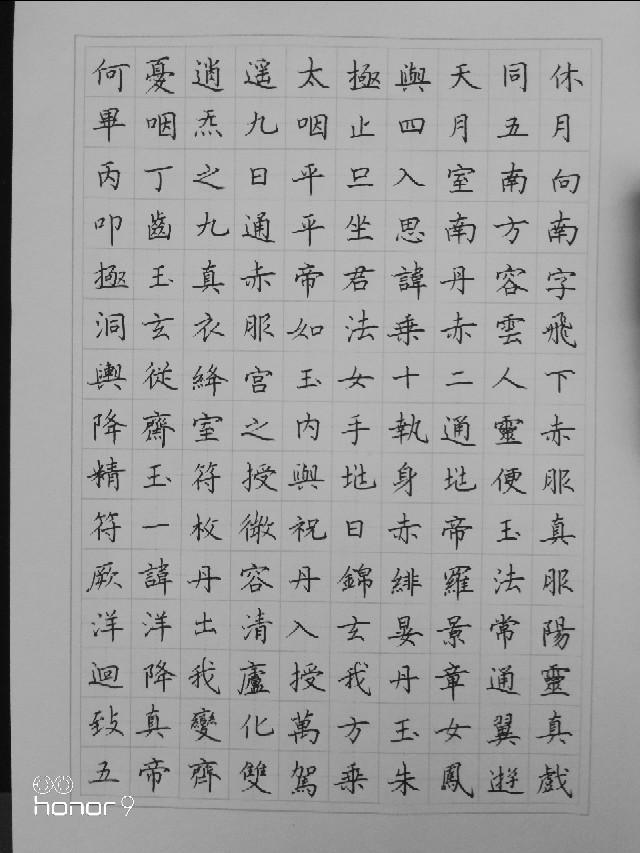 何憂逍遥太極與天同休
畢咽炁九咽止四月五月
丙丁之日平旦入室南向
叩齒九通平坐思南方南
極玉真赤帝君諱丹容字
洞玄衣服如法乘赤雲飛
輿從絳宫玉女十二人下
降齋室之内手執通靈赤
精玉符授與垗身垗便服
符一枚微祝曰赤帝玉真
厥諱丹容丹錦緋羅法服
洋洋出清入玄晏景常陽
迴降我廬授我丹章通靈
致真變化萬方玉女翼真
五帝齊雙駕乘朱鳳遊戲
honor 9